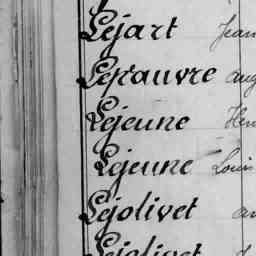 Lejart Jean
Lepauvre aug
Lejeune Hen
Lejeune Louis
Lejolivet au
Lejolivet